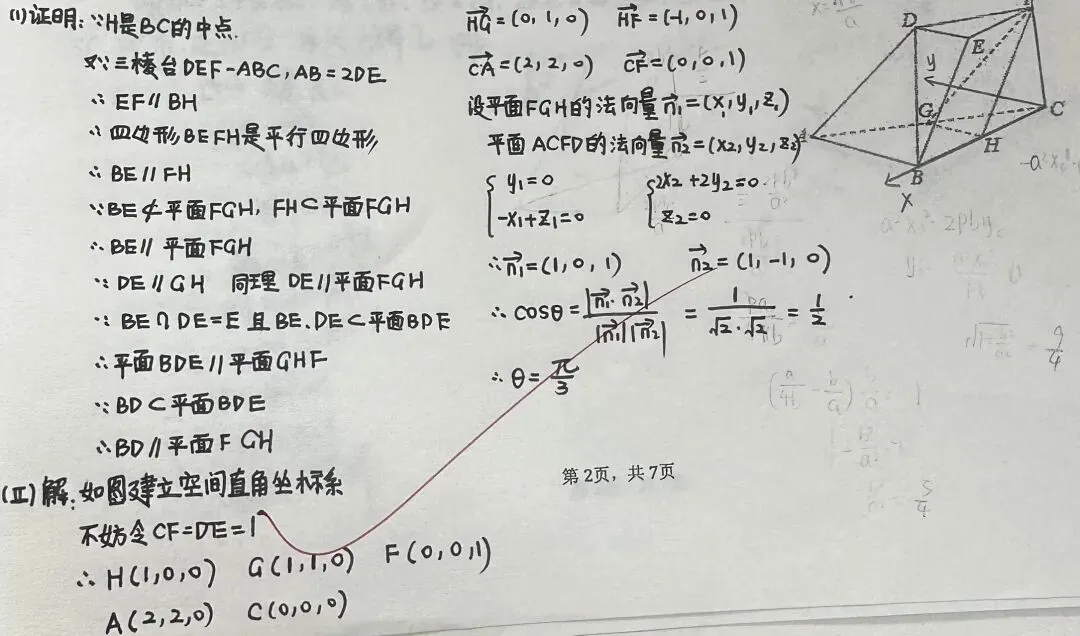 (1)证明:∵H是BC的中点.
又∵三棱台DEF-ABC,AB=2DE
∴EF∥BH
∴四边形BEFH是平行四边形,
∴BE∥FH
∵BE⊄平面FGH,FH⊂平面FGH
∴BE∥平面FGH
∵DE∥GH 同理 DE∥平面FGH
∵BE∩DE=E且BE.DE⊂平面BDE
∴平面BDE∥平面GHF
∵BD⊂平面BDE
∴BD∥平面FGH
(Ⅱ)解:如图建立空间直角坐标系
不妨令CF=DE=1
∴H(1,0,0) G(1,1,0) F(0,0,1)
A(2,2,0) C(0,0,0)
HG=(0,1,0) HF=(-1,0,1)
CA=(2,2,0) CF=(0,0,1)
设平面FGH的法向量n₁=(x₁,y₁,z₁)
平面ACFD的法向量n₂=(x₂,y₂,z₂)
{y₁=0 {2x₂+2y₂=0
-x₁+z₁=0 z₂=0
∴n₁=(1,0,1) n₂=(1,-1,0)
∴cosθ=|n₁·n₂|/|n₁||n₂|=1/√2·√2=1/2
∴θ=π/3
D
E
y
G
C
H
B
X
第2页,共7页